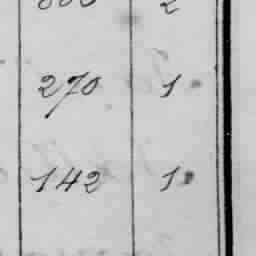 270 1
142 1